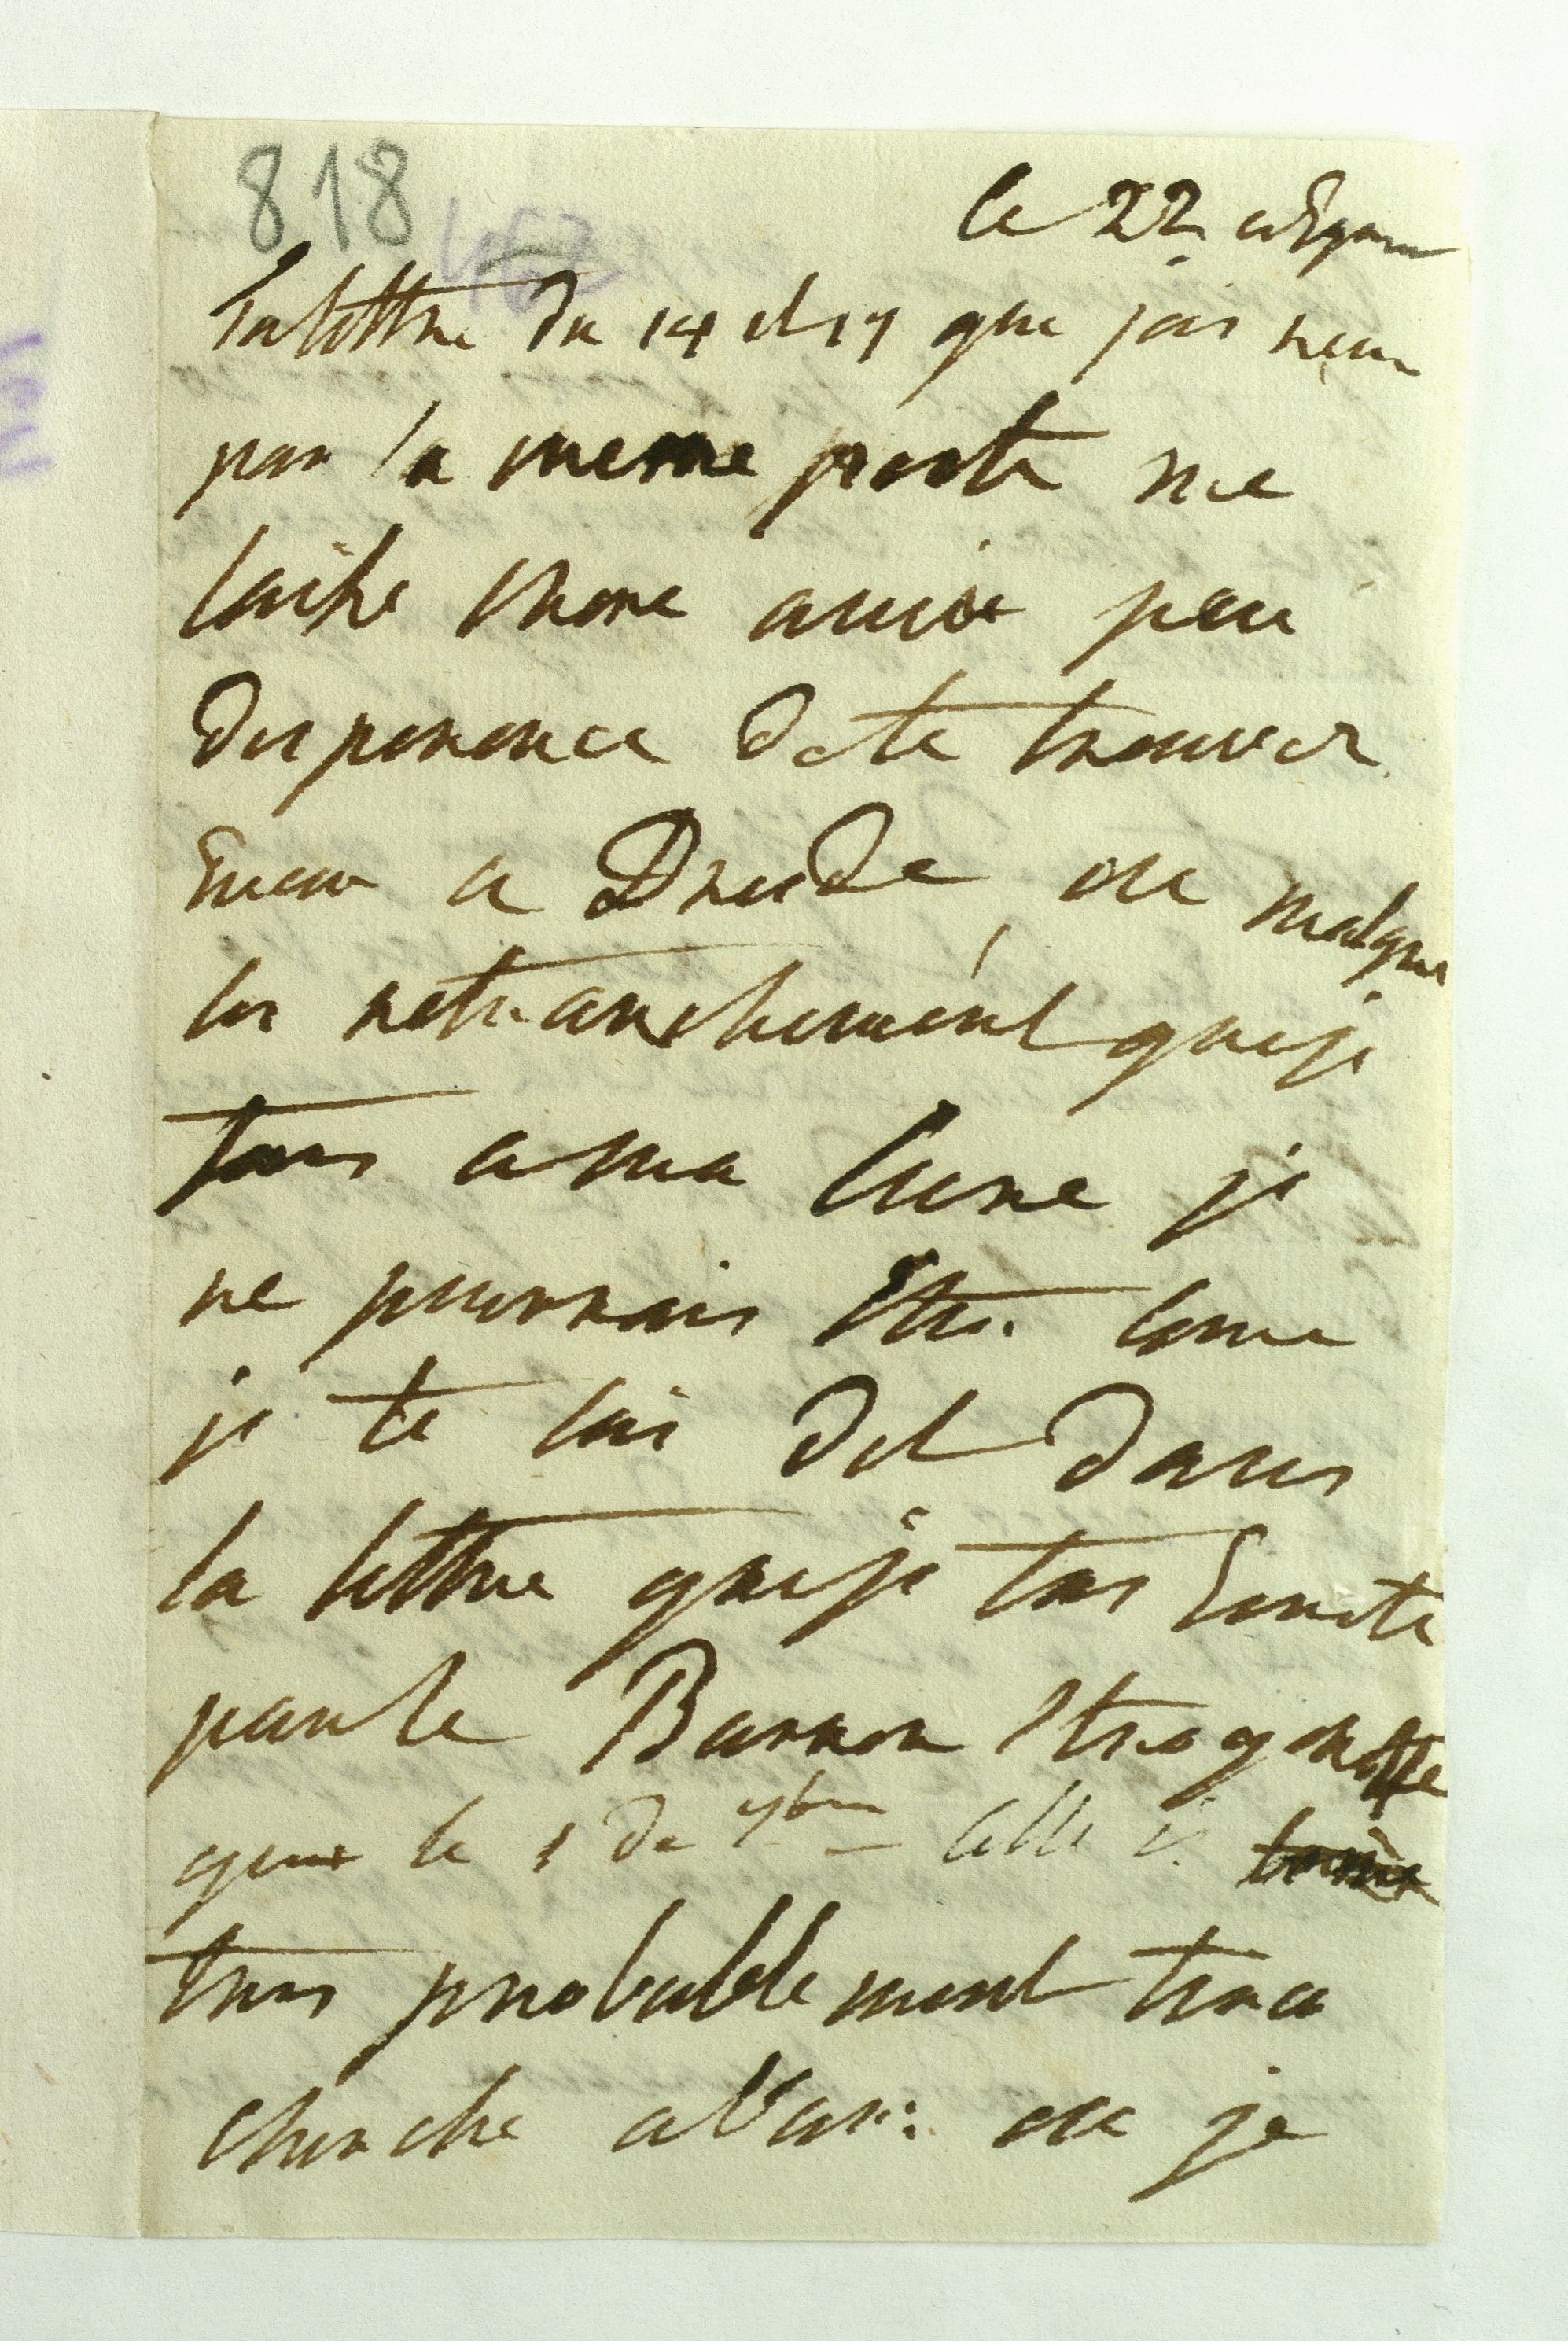 818
le 22
Ta lettre du 14 et 17 que jais recu
par la meme poste me
laisse chere amie peu
desperence de te trouver
Encor a Dresde, ou malgre
les retranchement que je
fais a ma cure je
ne pourrais etre come
je te lais dit dans
la lettre que je tais Ecrite
par le Barron Strogonoffe
que le 1 de 7bre
tres probablement tu a
cherche a
ou je